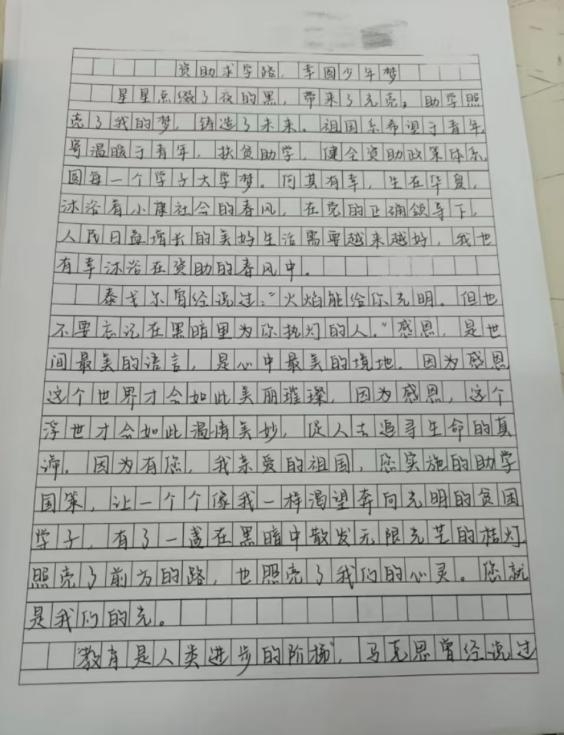 资助求学路，幸圆少年梦
星星点缀了夜的黑，带来了光亮。助学照
亮了我的梦，铸造了未来。祖国系希望于青年，
寄温暖于青年，扶贫助学，健全资助政策体系，
圆每一个学子大学梦。何其有幸，生在华夏，
沐浴着小康社会的春风，在党的正确领导下，
人民日益增长的美好生活需要越来越好，我也
有幸沐浴在资助的春风中。
泰戈尔曾经说过：“火焰能给你光明。但也
不要忘记在黑暗里为你执灯的人。”感恩，是世
间最美的语言，是心中最美的境地。因为感恩
这个世界才会如此美丽璀璨，因为感恩，这个
浮世才会如此温情美妙，促人去追寻生命的真
谛。因为有您，我亲爱的祖国，您实施的助学
国策，让一个个像我一样渴望奔向光明的贫困
学子，有了一盏在黑暗中散发无限光芒的桔灯
照亮了前方的路，也照亮了我们的心灵。您就
是我们的光。
“教育是人类进步的阶梯”，马克思曾经说过